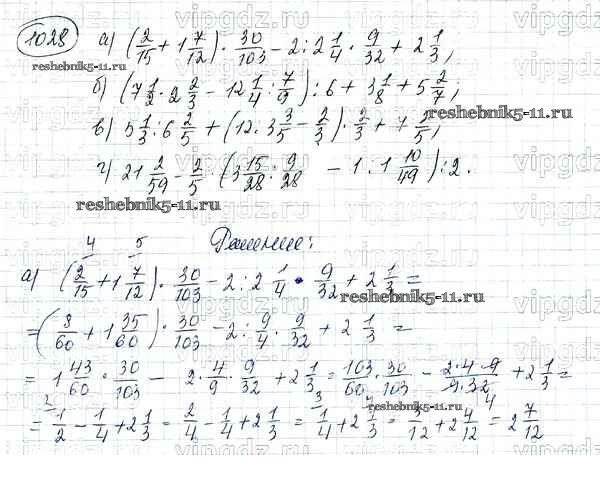 1028 а) (2/15 + 1 7/12) · 30/103 − 2 : 2 1/4 · 9/32 + 2 1/3;
reshebnik5-11.ru
б) (7 1/2 · 2 2/3 − 12 1/4 : 7/9) : 6 + 3 1/8 + 5 2/7;
reshebnik5-11.ru
в) 5 1/3 : 6 2/5 + (12 : 3 3/5 − 2/3) · 2/3 + 7 1/5;
г) 21 2/59 − 2/5 · (3 15/28 : 9/28 − 1 : 1 10/49) : 2.
reshebnik5-11.ru
Решение:
4 5
а) (2/15 + 1 7/12) · 30/103 − 2 : 2 1/4 · 9/32 + 2 1/3 =
reshebnik5-11.ru
= (8/60 + 1 35/60) · 30/103 − 2 : 9/4 · 9/32 + 2 1/3 =
= 1 43/60 · 30/103 − 2·4/9 · 9/32 + 2 1/3 = 103·30/60·103 − 2·4·9/9·32 + 2 1/3 =
= 1/2 − 1/4 + 2 1/3 = 2/4 − 1/4 + 2 1/3 = 1/4 + 2 1/3 = 3/12 + 2 4/12 = 2 7/12